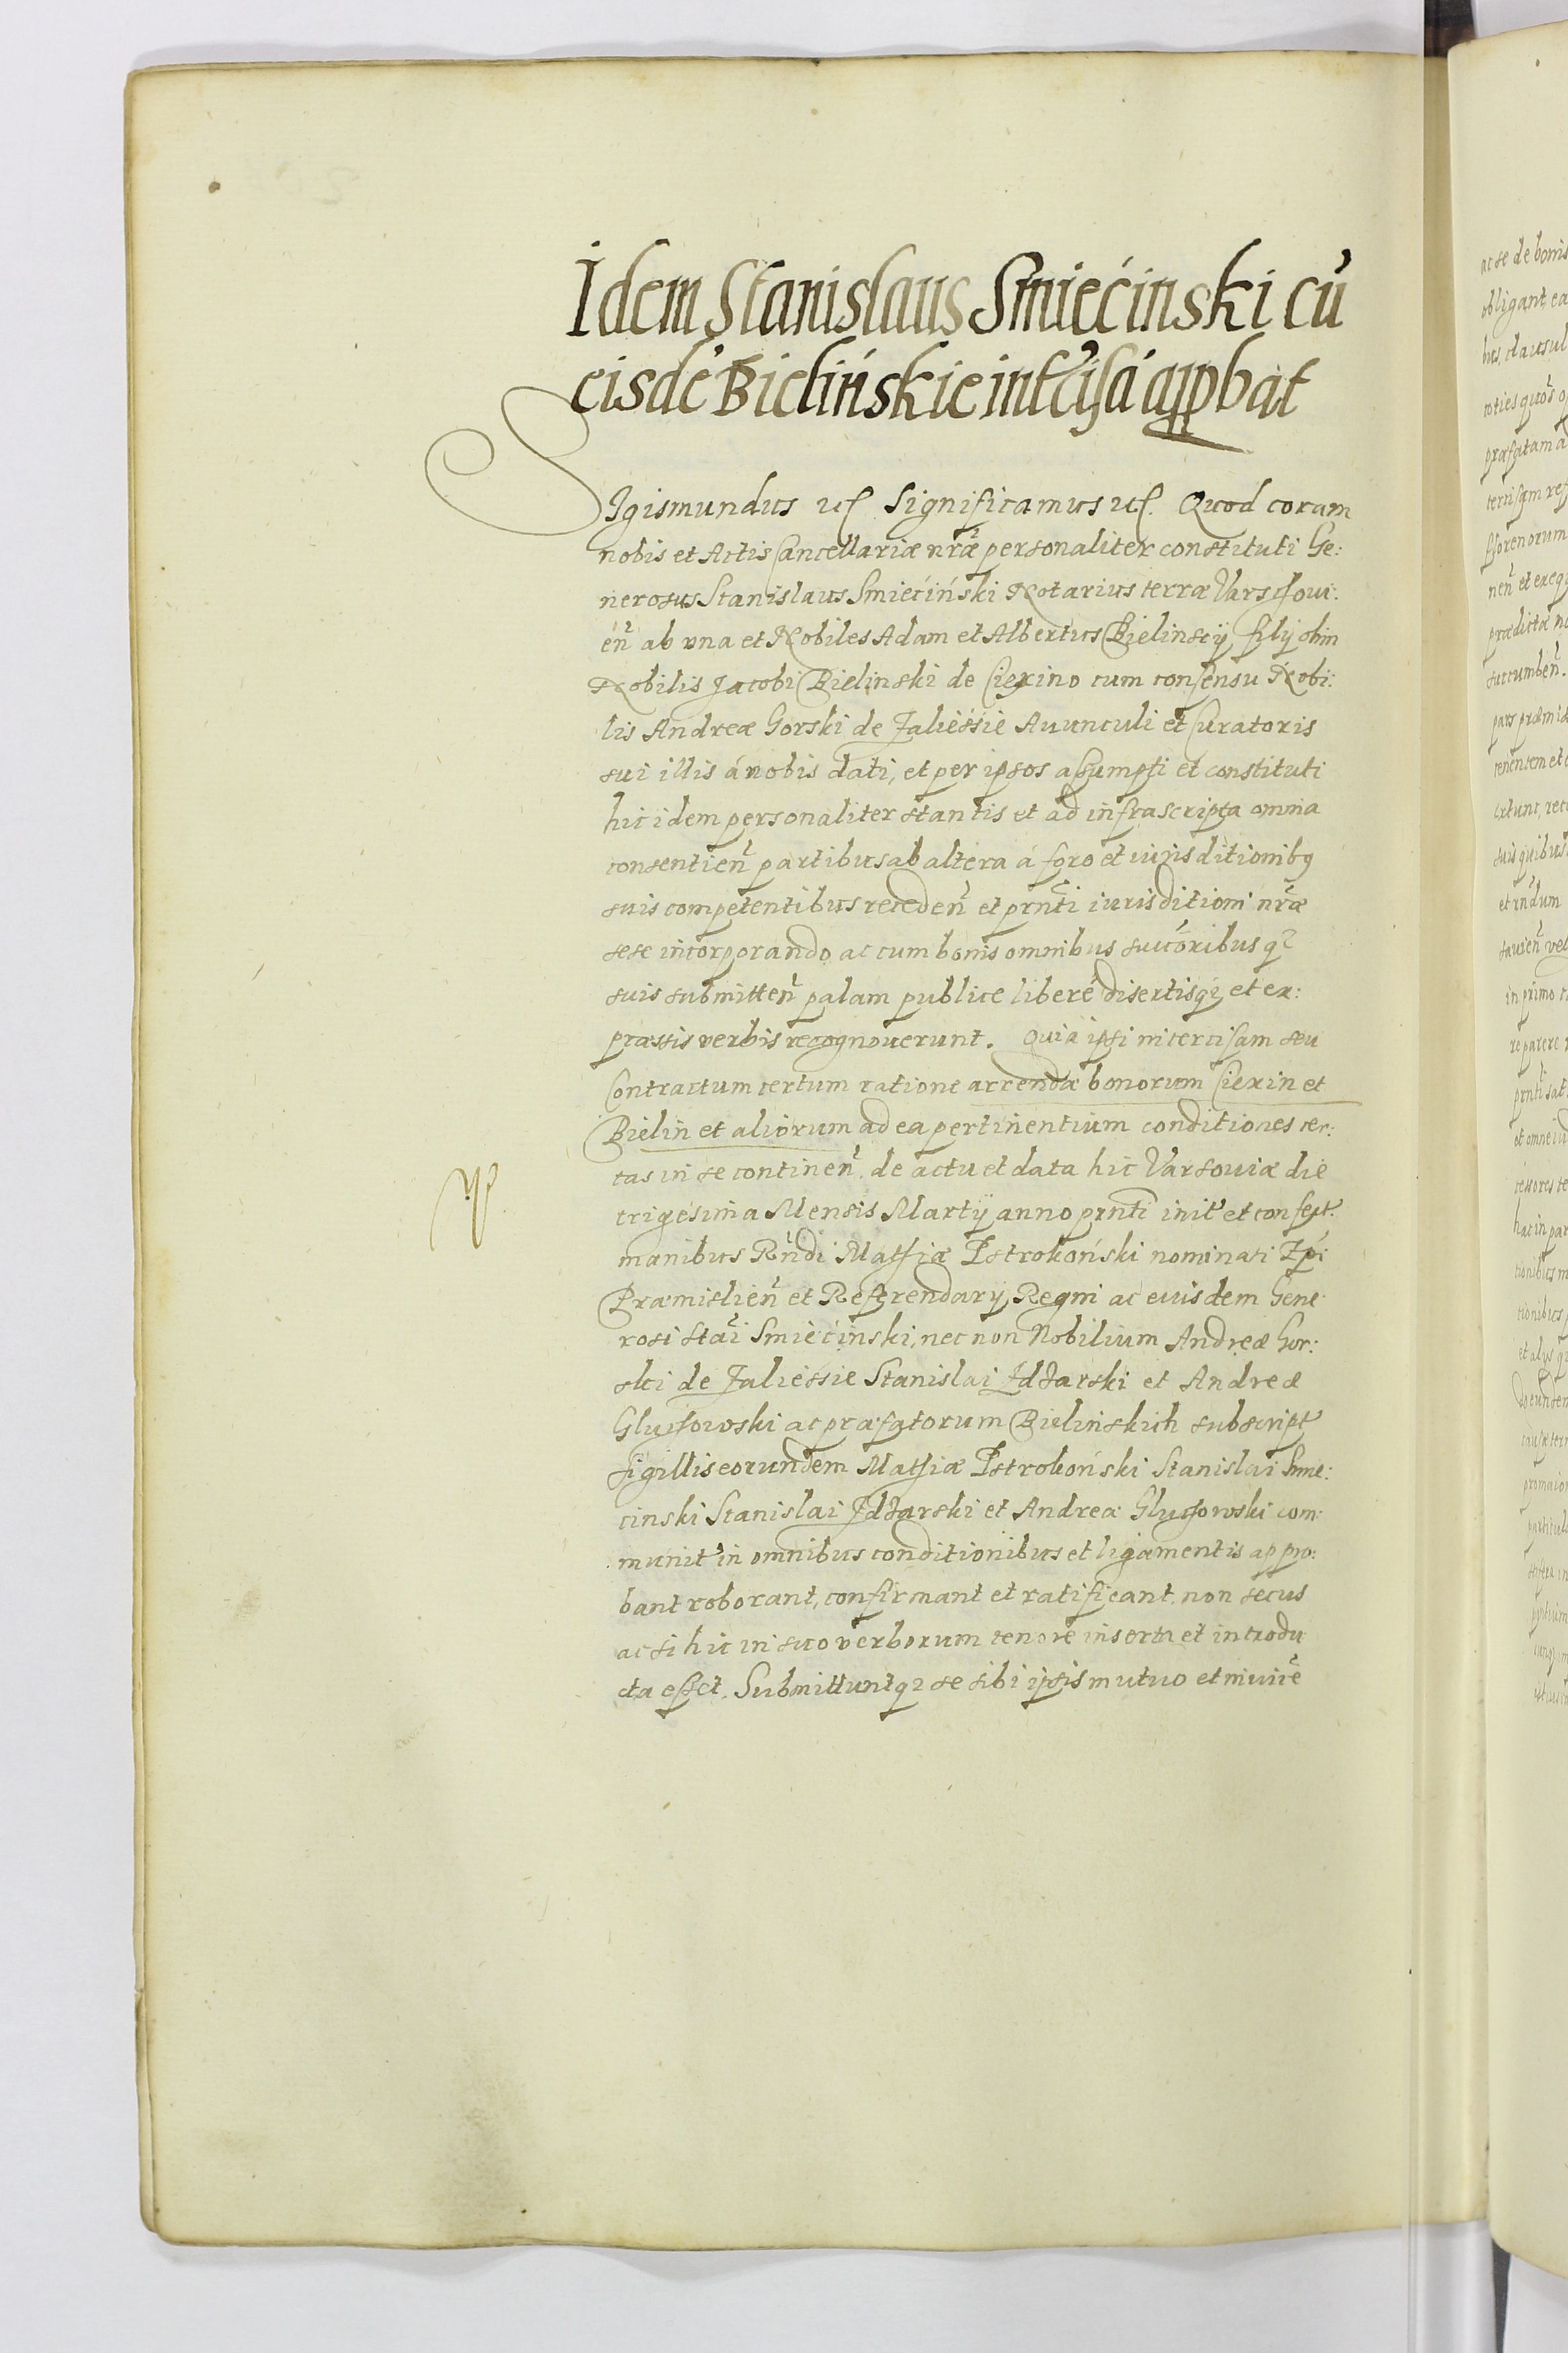 Idem Stanislaus Smiećinski cũ
eisdẽ Bielińskie intẽcisã apprbat
SIgismundus etc. Significamus etc. Quod coram
nobis et Actis Cancellariæ nrãe personaliter constituti Ge:
nerosus Stanislaus Smiećiński Notarius terræ Varschoui:
eñ ab vna et Nobiles Adam et Albertus Bielinscÿ filÿ olim
Nobilis Jacobi Bielinski de Ciexino cum consensu Nobi:
lis Andreæ Gorski de Zaliessie Auunculi et Curatoris
sui illis á nobis dati, et per ipsos assumpti et constituti
hic idem personaliter stantis et ad infrascripta omnia
consentieñ partibus ab altera á foro et iurisditionibꝰ
suis competentibus recedeñ et prñti iurisditioni nrãe
sese incorporando ac cum bonis omnibus succõribus qꝫ
suis submitteñ palam publice liberé disertisqꝫ et ex:
præssis verbis recognouerunt. Quia ipsi intercisam seu
Contractum certum ratione arrendæ bonorum Ciexin et
Bielin et aliorum ad ea pertinentium conditiones cer:
tas in se contineñ. de actu et data hic Varsouiæ die
trigesima Mensis Martÿ anno prñti init̃ et confect̃.
manibus Rñdi Mathiæ Pstrokoński nominati Epĩ
Præmislieñ et Referendarÿ Regni ac eiusdem Gene
rosi Stãi Smiećinski, nec non Nobilium Andreæ Gor:
ski de Zaliessie Stanislai Zdzarski et Andreæ
Gluchowski ac præfatorum Bielinskich subscript̃
sigillis eorundem Mathiæ Pstrokoński Stanislai Smie:
cinski Stanislai Zdzarski et Andreæ Gluchowski com:
munit̃ in omnibus conditionibus et ligamentis appro:
bant roborant, confirmant et ratificant. non secus
ac si hic in suo verborum tenore inserta et introdu
cta esset. Submittuntqꝫ se sibi ipsis mutuo et inuicẽ
ac se de bonis
obligant ea
præfatam
prædictæ
suis quibus
et omne